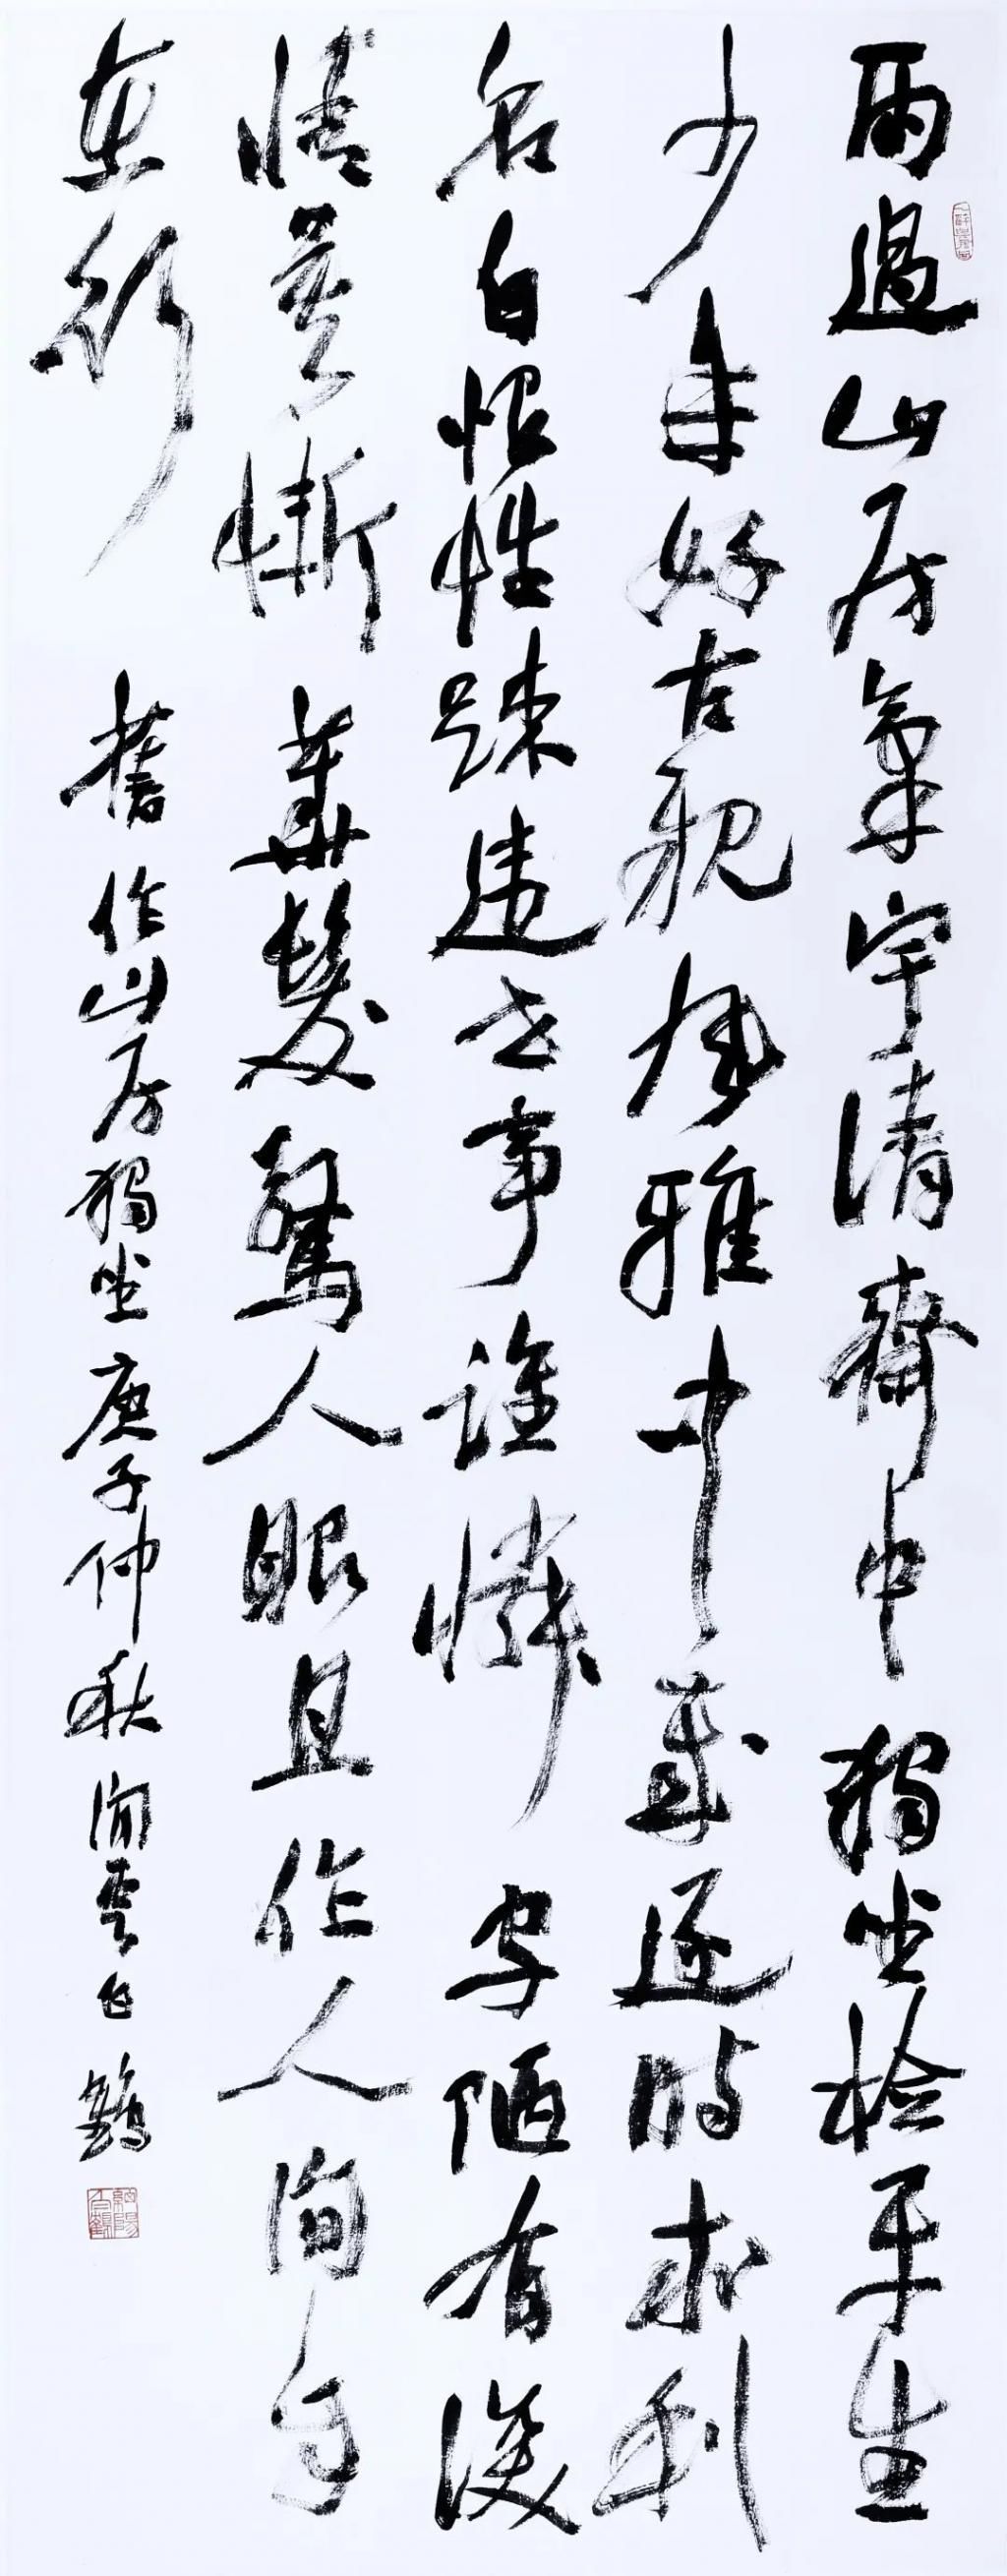 雨過山房氣宇清齋中獨坐檢平生
少年好古耽風雅中歲逐時求利
名自恨性疎違世事誰憐守陋有深
情莫慚華髮驚人眼且作人間自
在行 舊作山房獨坐庚子仲秋閒雲白鶴